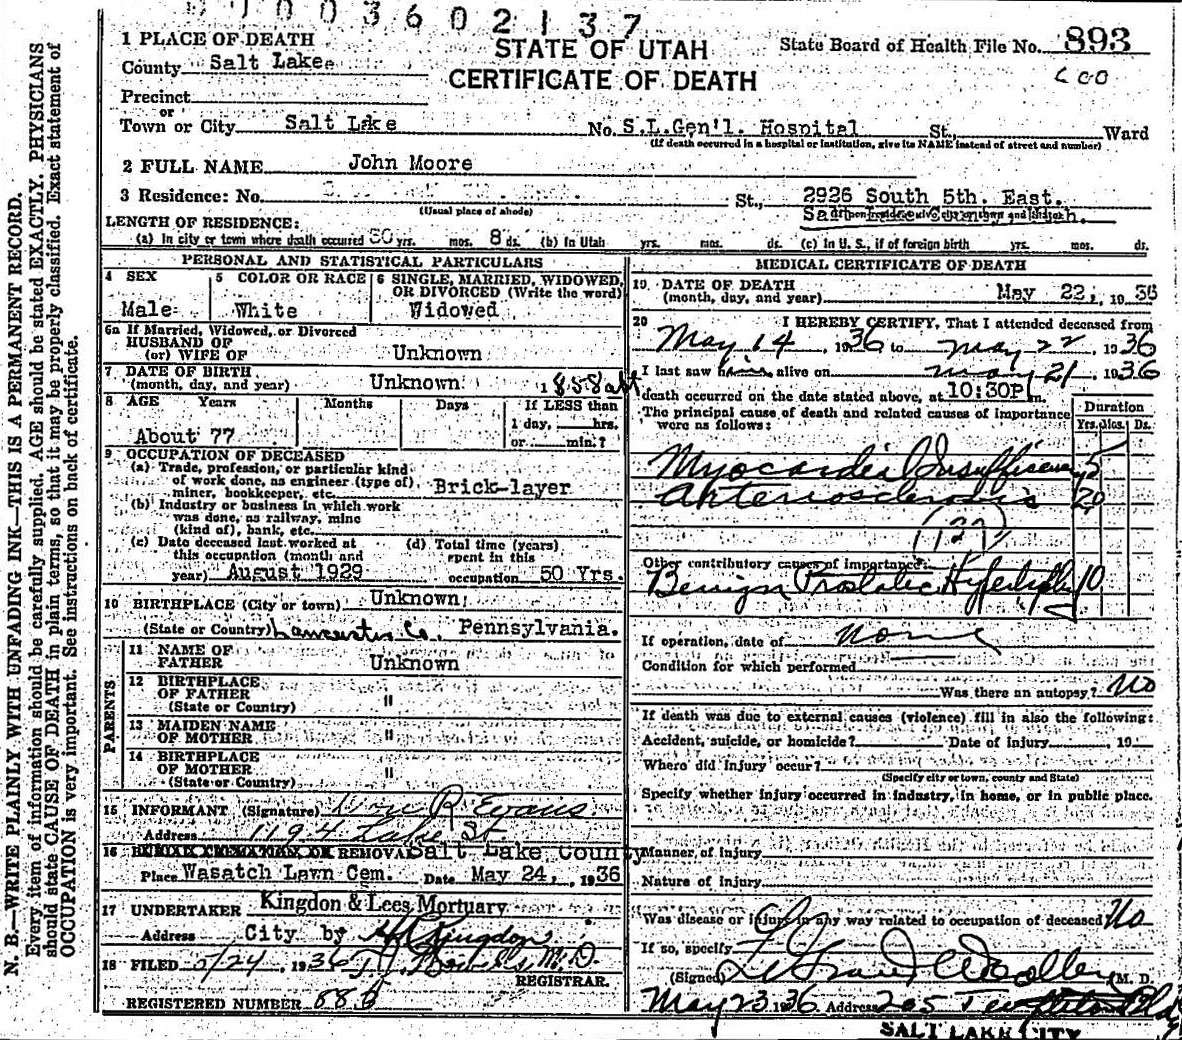 3602137
1 PLACE OF DEATH
STATE OF UTAH
State Board of Health File No. 893
County Salt Lake
CERTIFICATE OF DEATH
Precinct
or
Town or City Salt Lake No. S.L.Gen'l. Hospital St., Ward
(If death occurred in a hospital or institution, give its NAME instead of street and number)
2 FULL NAME John Moore
3 Residence: No. St., 2926 South 5th. East.
(Usual place of abode)
LENGTH OF RESIDENCE:
(a) In city or town where death occurred 50 yrs. mos. 8 ds. (b) In Utah yrs. mos. ds. (c) In U. S., if of foreign birth yrs. mos. ds.
PERSONAL AND STATISTICAL PARTICULARS
4 SEX 5 COLOR OR RACE 6 SINGLE, MARRIED, WIDOWED, OR DIVORCED (Write the word)
Male White Widowed
6a If Married, Widowed, or Divorced
HUSBAND OF
(or) WIFE OF Unknown
7 DATE OF BIRTH
(month, day, and year) Unknown 1858
8 AGE Years Months Days If LESS than
1 day, hrs.
About 77 or min.?
9 OCCUPATION OF DECEASED
(a) Trade, profession, or particular kind
of work done, as engineer (type of),
miner, bookkeeper, etc. Brick-layer
(b) Industry or business in which work
was done, as railway, mine
(kind of), bank, etc.
(c) Date deceased last worked at
this occupation (month and
year) August 1929
(d) Total time (years)
spent in this
occupation 50 Yrs.
10 BIRTHPLACE (City or town) Unknown
(State or Country) Lancaster Co. Pennsylvania.
PARENTS
11 NAME OF
FATHER Unknown
12 BIRTHPLACE
OF FATHER "
(State or Country)
13 MAIDEN NAME
OF MOTHER "
14 BIRTHPLACE
OF MOTHER "
(State or Country)
15 INFORMANT (Signature) R Evans
Address 1194 Lake St
16 BURIAL CREMATION OR REMOVAL Salt Lake County
Place Wasatch Lawn Cem. Date May 24, 1936
17 UNDERTAKER Kingdon & Lees Mortuary
Address City by Kingdon
18 FILED 5/24, 1936 M.D.
REGISTRAR.
REGISTERED NUMBER 885
MEDICAL CERTIFICATE OF DEATH
19 DATE OF DEATH
(month, day, and year) May 22, 1936
20 I HEREBY CERTIFY, That I attended deceased from
May 14, 1936 to May 22 1936
I last saw him alive on May 21, 1936
death occurred on the date stated above, at 10:30P m.
The principal cause of death and related causes of importance
were as follows:
Duration
Yrs. Mos. Ds.
Myocardial Insufficiency 5
Arteriosclerosis 20
Other contributory causes of importance:
Benign Prostatic Hypertrophy 10
If operation, date of none
Condition for which performed
Was there an autopsy? No
If death was due to external causes (violence) fill in also the following:
Accident, suicide, or homicide? Date of injury , 19
Where did injury occur?
(Specify city or town, county and State)
Specify whether injury occurred in industry, in home, or in public place.
Manner of Injury
Nature of injury
Was disease or injury in any way related to occupation of deceased No
If so, specify
(Signed) M. D.
May 23 1936 Address 205 Templeton Bldg
SALT LAKE CITY
N. B.—WRITE PLAINLY WITH UNFADING INK—THIS IS A PERMANENT RECORD.
Every item of information should be carefully supplied. AGE should be stated EXACTLY. PHYSICIANS
should state CAUSE OF DEATH in plain terms, so that it may be properly classified. Exact statement of
OCCUPATION is very important. See instructions on back of certificate.